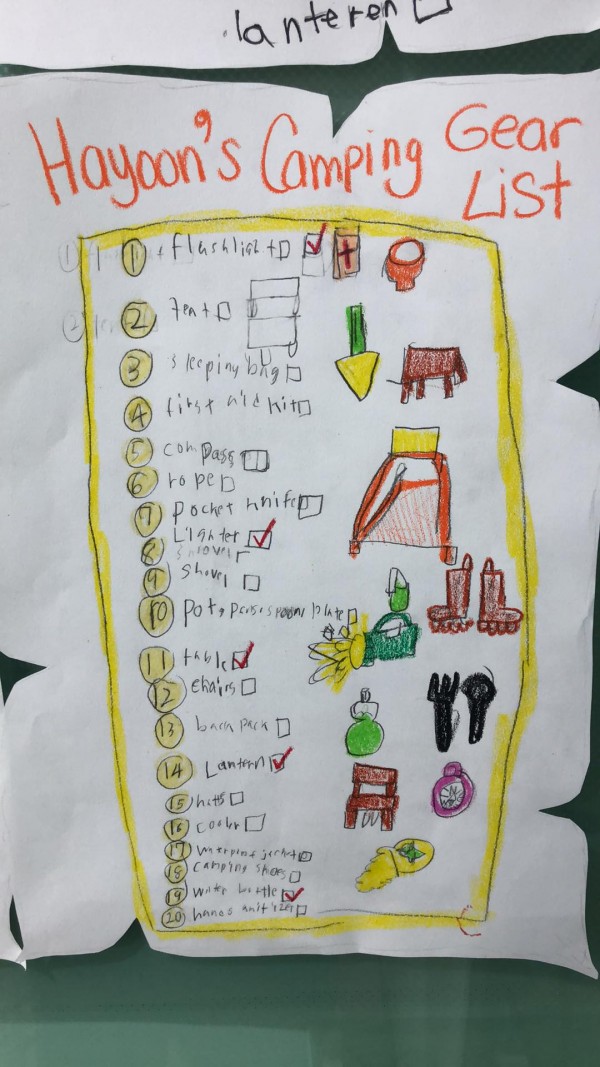 lanteren
Hayoon's Camping Gear
List
1 flashlight
2 Tent
3 sleeping bag
4 first aid kit
5 compass
6 rope
7 pocket knife
8 Lighter
shovel
9 shovel
10 pot, pans
plate
11 table
12 chairs
13 back pack
14 Lantern
15 hats
16 cooler
17 jacket
18 camping shoes
19 water bottle
20